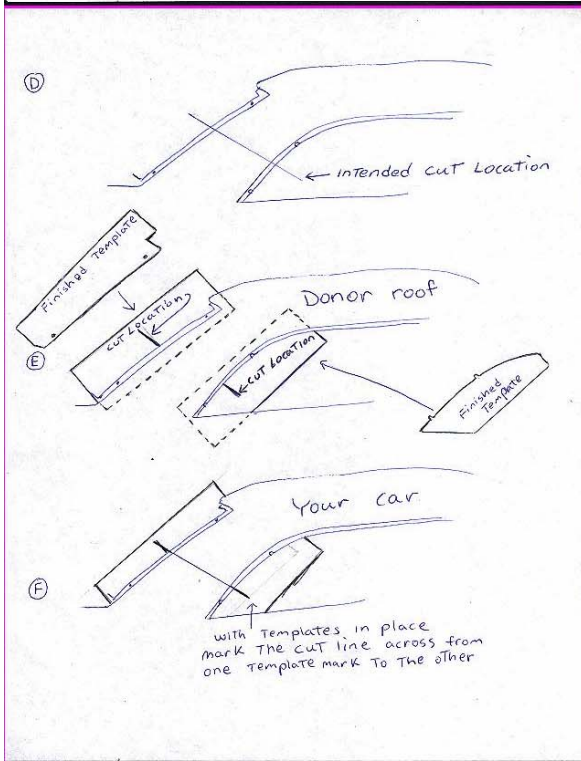 D
← INTENDED CUT LOCATION
Finished Template
CUT LOCATION
Donor roof
E
← CUT LOCATION
Finished
Template
Your car
F
with Templates in place
mark The cut line across from
one Template mark To The other